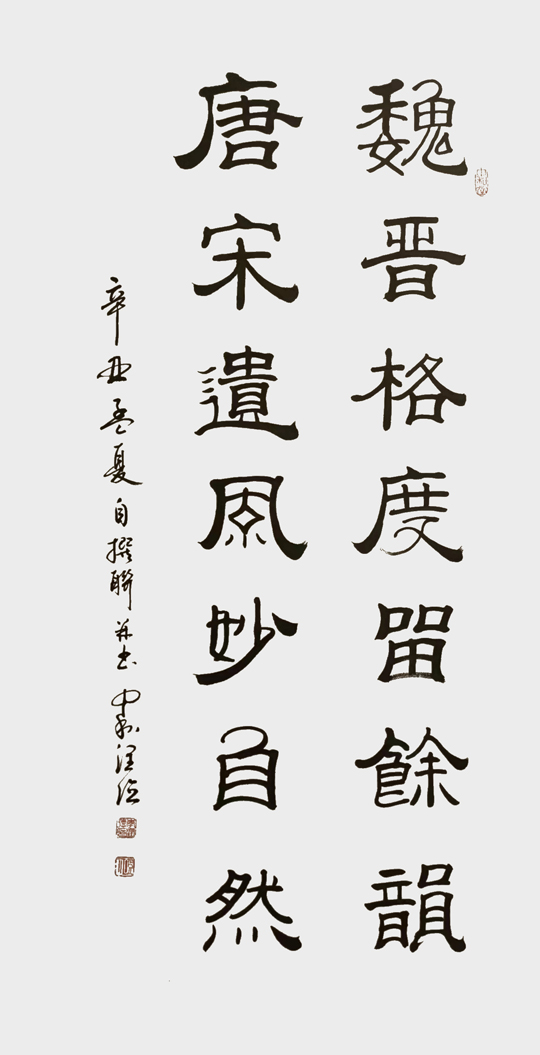 魏晋格度留餘韻
唐宋遺風妙自然
辛丑孟夏自撰聯并书